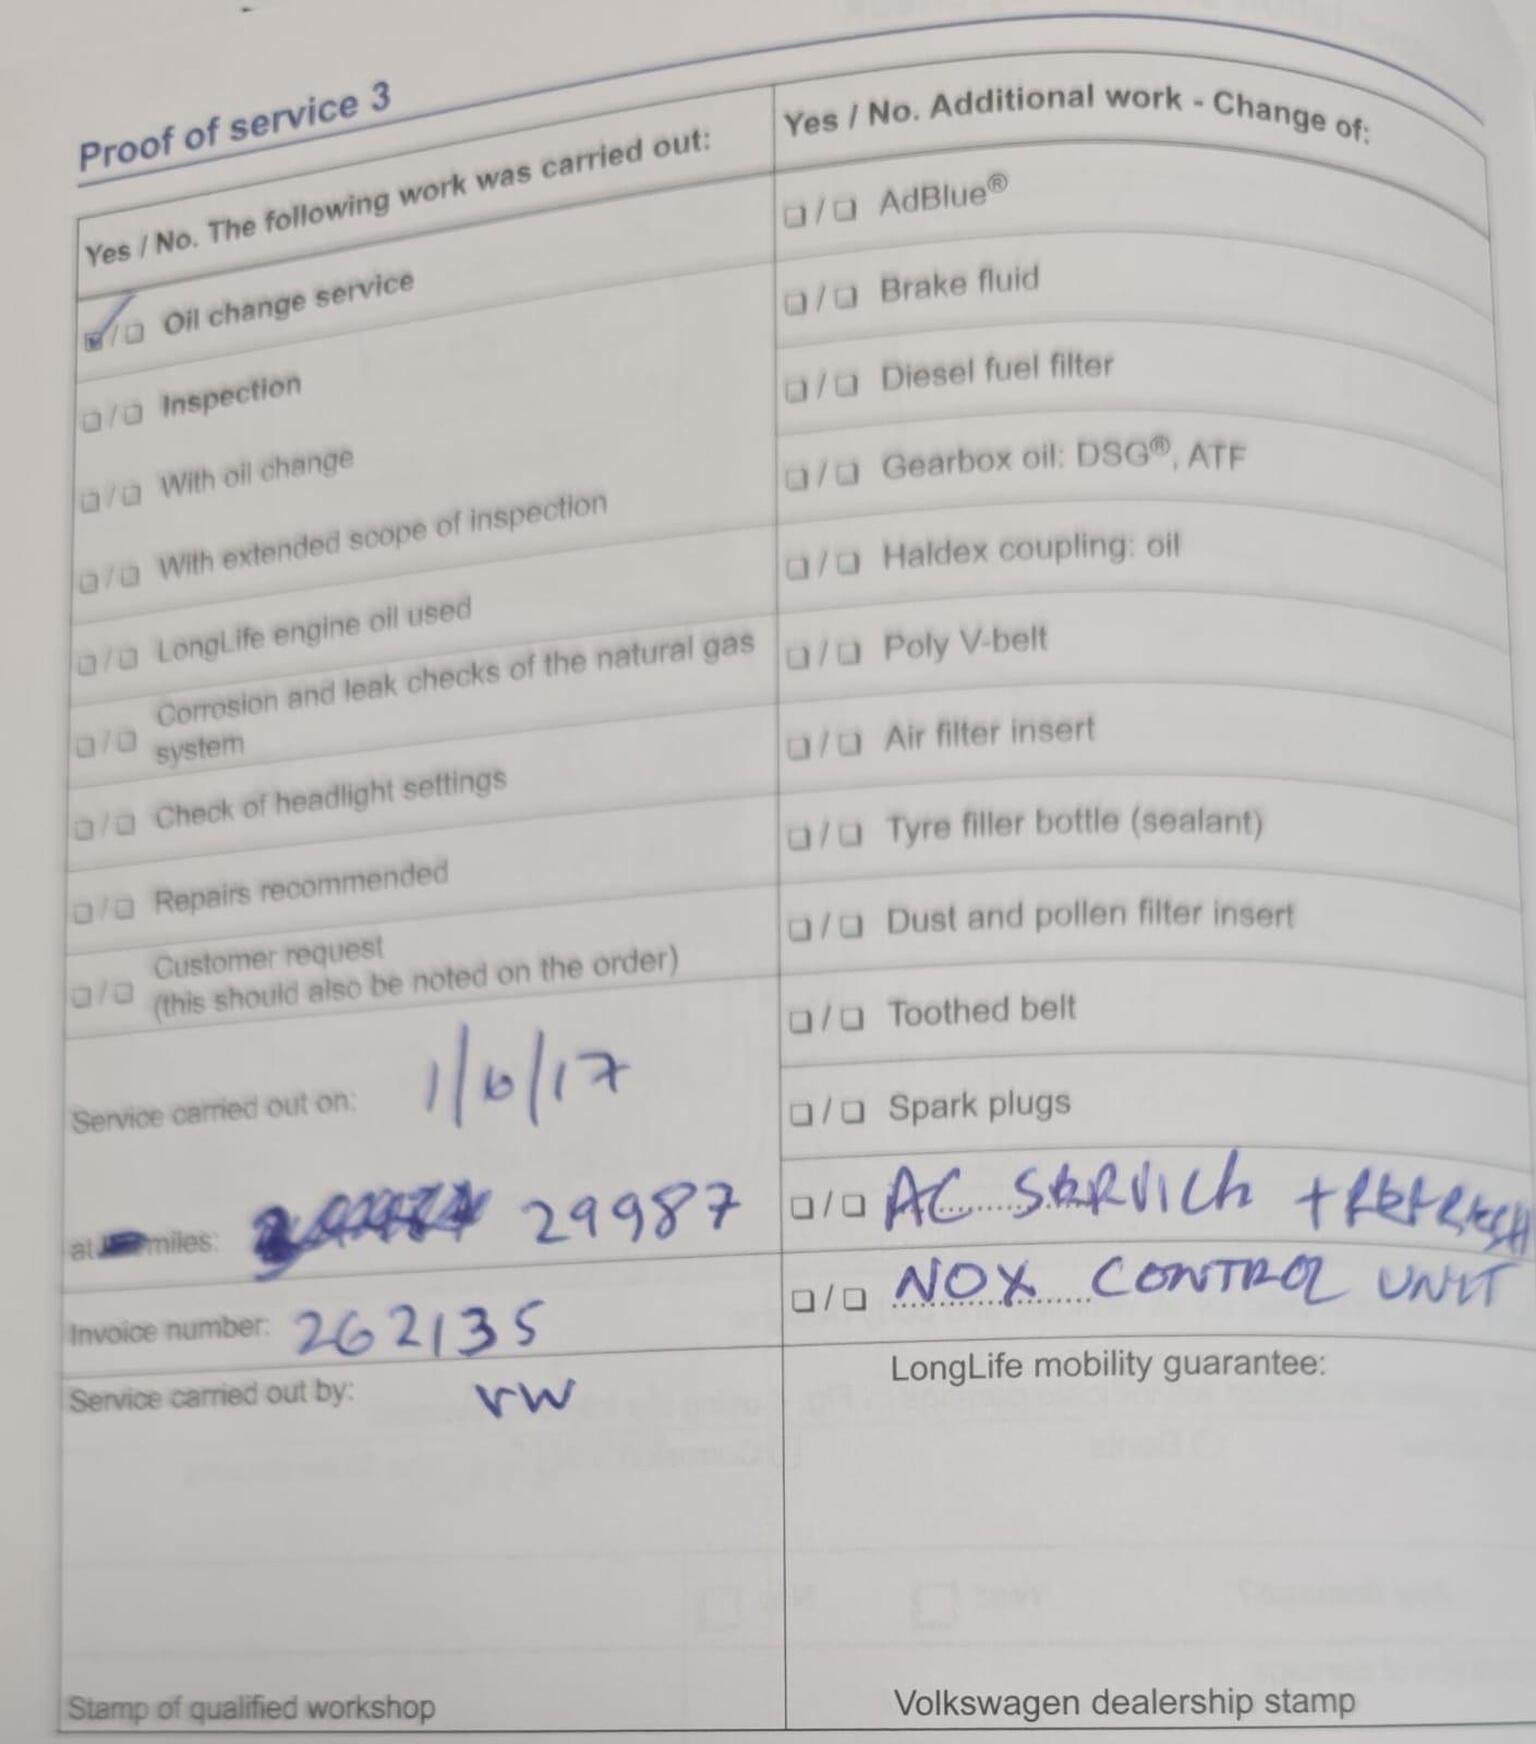 Proof of service 3
Yes / No. The following work was carried out:
☑/☐ Oil change service
☐/☐ Inspection
☐/☐ With oil change
☐/☐ With extended scope of inspection
☐/☐ LongLife engine oil used
☐/☐ Corrosion and leak checks of the natural gas
system
☐/☐ Check of headlight settings
☐/☐ Repairs recommended
☐/☐ Customer request
(this should also be noted on the order)
Service carried out on: 1/6/17
at miles: 29987
Invoice number: 262135
Service carried out by: VW
Stamp of qualified workshop
Yes / No. Additional work - Change of:
☐/☐ AdBlue®
☐/☐ Brake fluid
☐/☐ Diesel fuel filter
☐/☐ Gearbox oil: DSG®, ATF
☐/☐ Haldex coupling: oil
☐/☐ Poly V-belt
☐/☐ Air filter insert
☐/☐ Tyre filler bottle (sealant)
☐/☐ Dust and pollen filter insert
☐/☐ Toothed belt
☐/☐ Spark plugs
☐/☐ AC SERVICE + REFRESH
☐/☐ NOX CONTROL UNIT
LongLife mobility guarantee:
Volkswagen dealership stamp